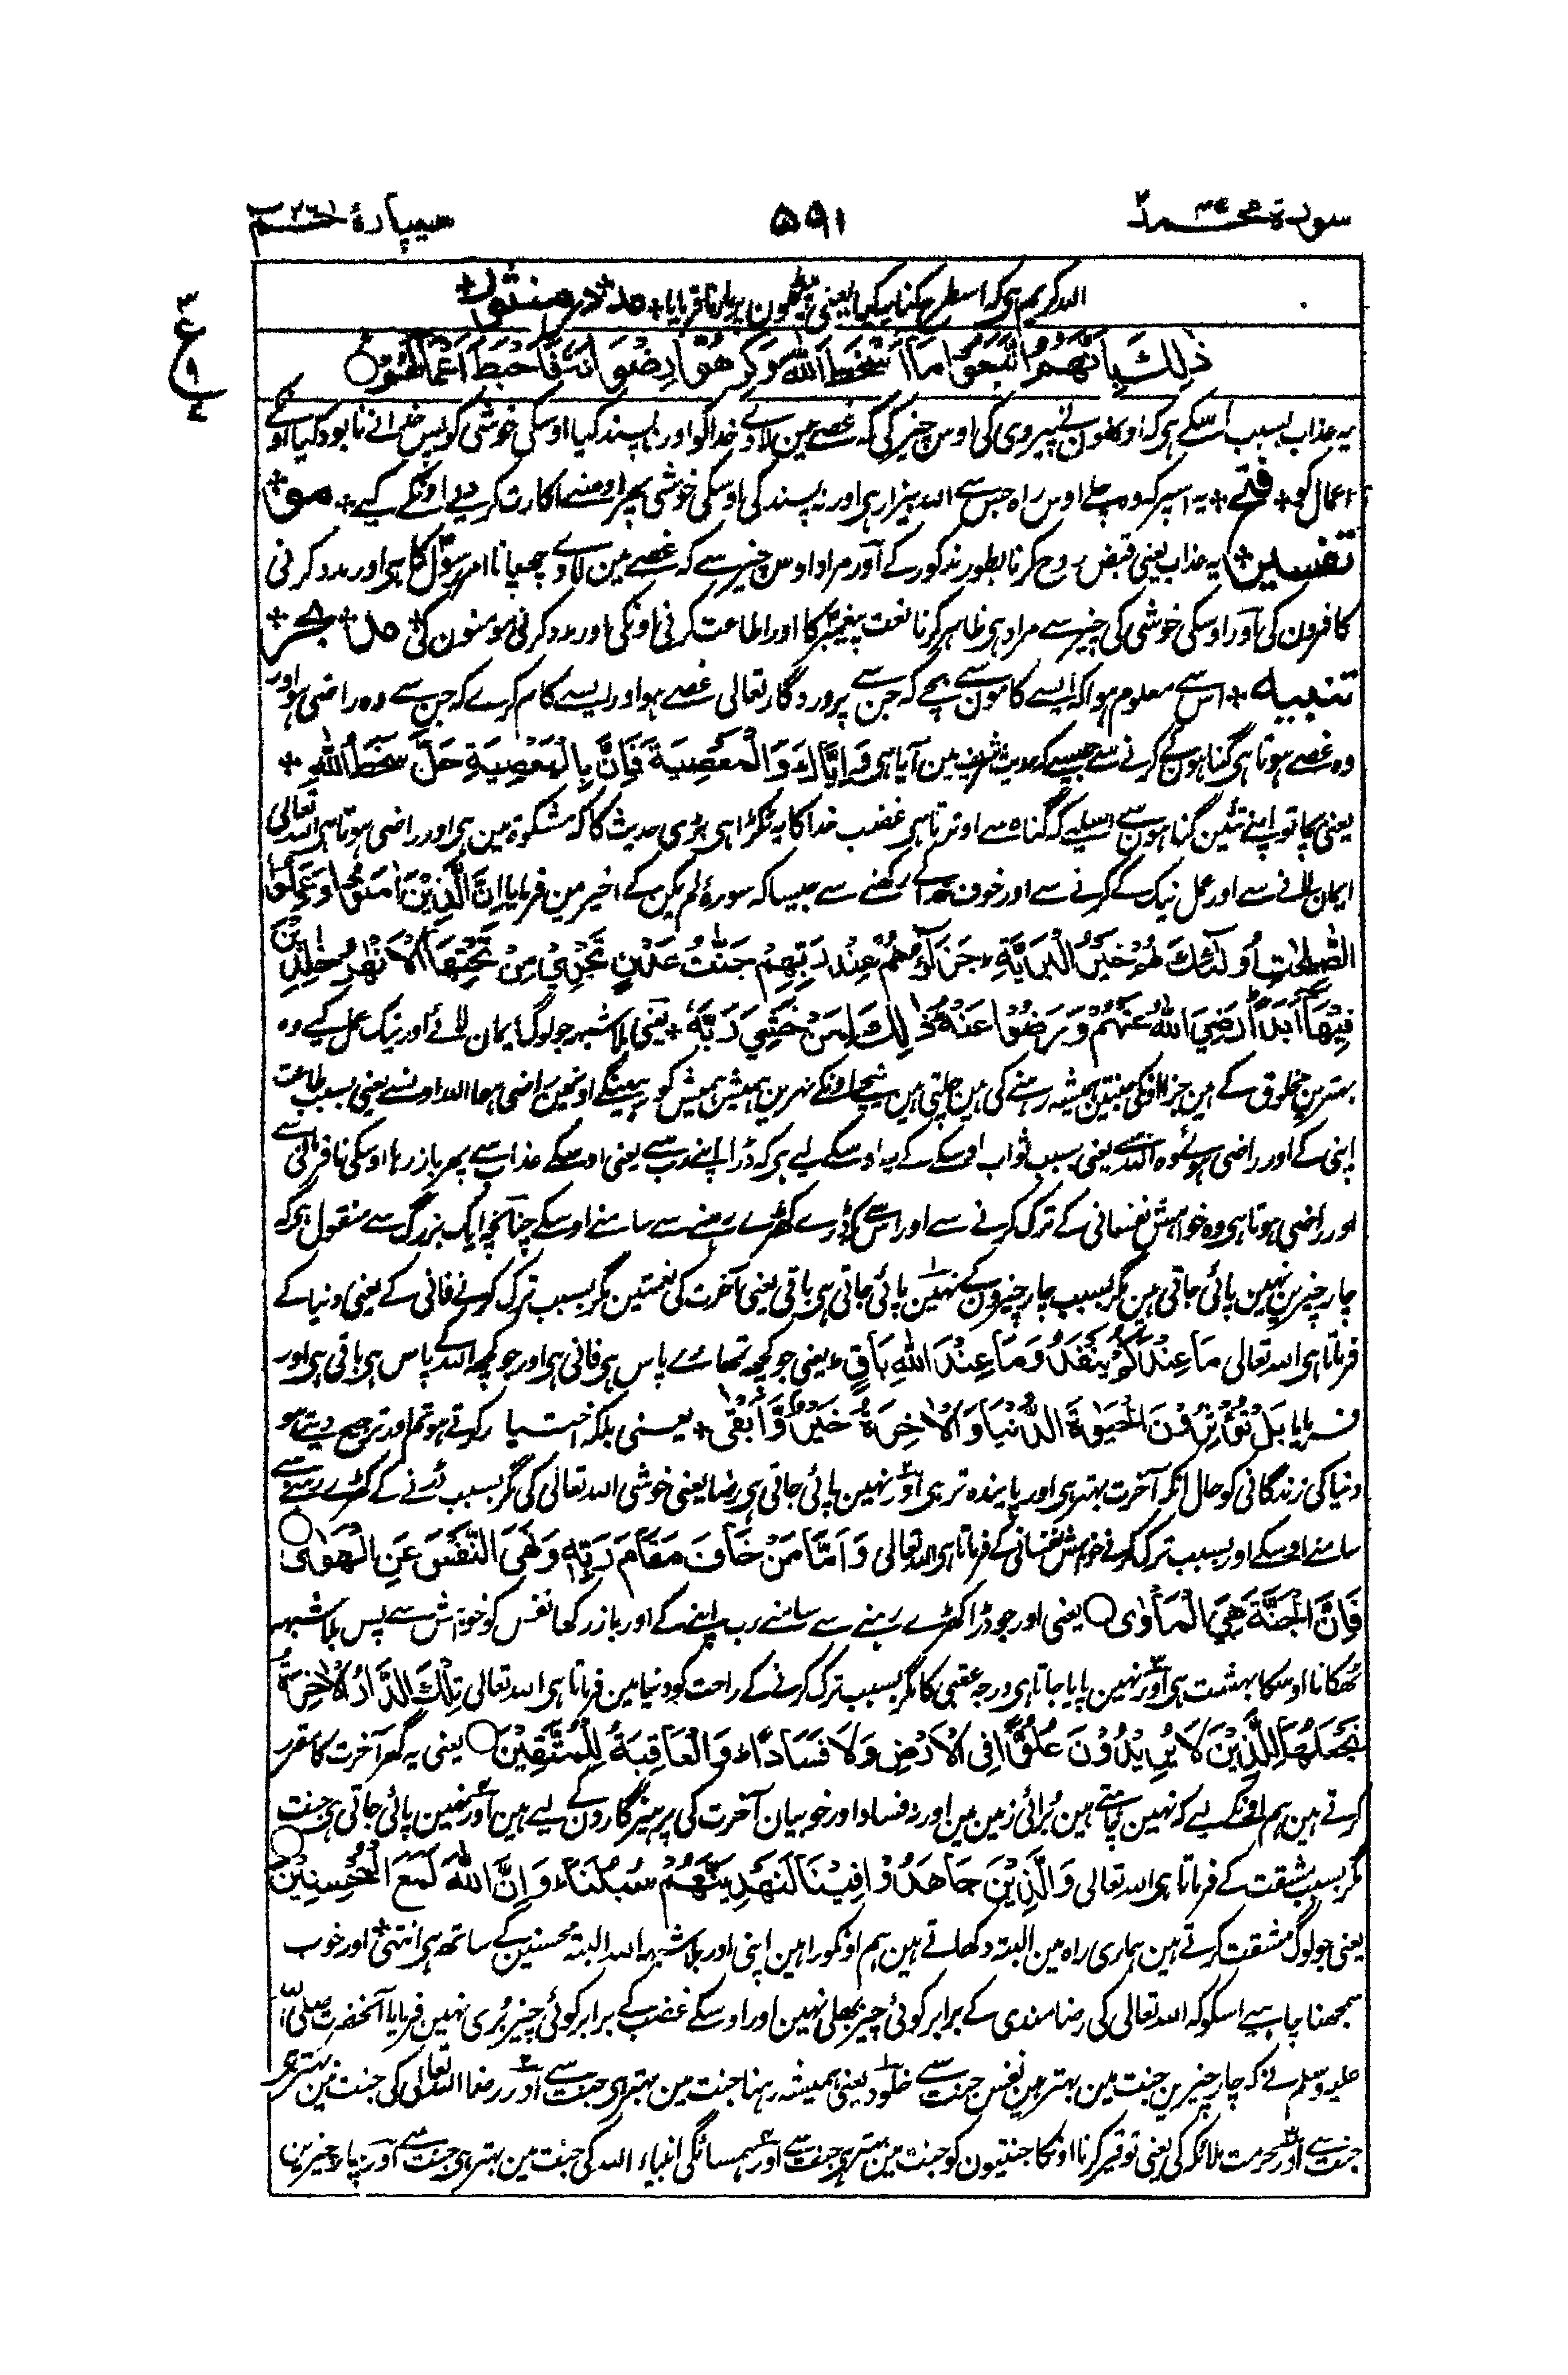 سورۃ محمد ۴۷
۵۹۱
سیپارۂ حٰم ۲۶
اللہ کریم ہی کہ اسطرح کنایہ کیا یعنی پیٹھون پر مارنا فرمایا + مد + در منثور +
ذٰلِكَ بِاَنَّهُمُ اتَّبَعُوْا مَآ اَسْخَطَ اللّٰهَ وَكَرِهُوْا رِضْوَانَهٗ فَاَحْبَطَ اَعْمَالَهُمْ ○
یہ عذاب بسبب اسکے ہی کہ اونھون نے پیروی کی اوس چیز کی کہ غصے مین لاوے خدا کو اور نا پسند کیا اوسکی خوشی کو پس خدا نے نابود کیا اونکے
اعمال کو + فتح + یہ اسپر کہ وہ چلے اوس راہ جس سے اللہ بیزار ہی اور نہ پسند کی اوسکی خوشی پھر اوسنے اکارت کر دیے اونکے کیے + مو +
تفسیر + یہ عذاب یعنی قبض روح کرنا بطور مذکور کے اور مراد اوس چیز سے کہ غصے مین لاوے چھپانا امر رسول کا ہی اور مدد کرنی
کافرون کی اور اوسکی خوشی کی چیز سے مراد ہی ظاہر کرنا نعت پیغمبر کا اور اطاعت کرنی اونکی اور مدد کرنی مومنون کی + مد + بحر +
تنبیہ + اس سے معلوم ہوا کہ ایسے کامون سے بچے کہ جن سے پروردگار تعالی غصے ہو اور ایسے کام کرے کہ جن سے وہ راضی ہو اور
وہ غصے ہوتا ہی گناہون کے کرنے سے جیسے کہ حدیث شریف مین آیا ہی وَاِيَّاكَ وَالْمَعْصِيَةَ فَاِنَّ بِالْمَعْصِيَةِ حَلَّ سَخَطُ اللّٰهِ +
یعنی بچا تو اپنے تئین گناہون سے اسلیے کہ گناہ سے اوترتا ہی غضب خدا کا یہ ٹکڑا ہی بڑی حدیث کا کہ مشکوۃ مین ہی اور راضی ہوتا ہی اللہ تعالی
ایمان لانے سے اور عمل نیک کے کرنے سے اور خوف خدا کے رکھنے سے جیسا کہ سورۂ لم یکن کے اخیر مین فرمایا اِنَّ الَّذِيْنَ اٰمَنُوْا وَعَمِلُوا
الصّٰلِحٰتِ اُولٰٓئِكَ هُمْ خَيْرُ الْبَرِيَّةِ ؕ جَزَآؤُهُمْ عِنْدَ رَبِّهِمْ جَنّٰتُ عَدْنٍ تَجْرِيْ مِنْ تَحْتِهَا الْاَنْهٰرُ خٰلِدِيْنَ
فِيْهَآ اَبَدًا ؕ رَضِيَ اللّٰهُ عَنْهُمْ وَرَضُوْا عَنْهُ ؕ ذٰلِكَ لِمَنْ خَشِيَ رَبَّهٗ + یعنی بلا شبہ جو لوگ ایمان لائے اور نیک عمل کیے وہ
بہترین مخلوق کے ہین جزا اونکی جنتین ہمیشہ رہنے کی ہین چلتی ہین نیچے اونکے نہرین ہمیش ہمیش کو رہینگے اونمین راضی ہوا اللہ اونسے یعنی بسبب طاعت
اپنی کے اور راضی ہوئے وہ اللہ سے یعنی بسبب ثواب اوسکے کے یہ اوسکے لیے ہی کہ ڈرا اپنے رب سے یعنی اوسکے عذاب سے پھر باز رہا اوسکی نافرمانی سے
اور راضی ہوتا ہی وہ خواہش نفسانی کے ترک کرنے سے اور اس سے کہ ڈرے کھڑے رہنے سے سامنے اوسکے چنانچہ ایک بزرگ سے منقول ہی کہ
چار چیزین نہین پائی جاتی ہین مگر بسبب چار چیزون کے نہین پائی جاتی ہی باقی یعنی آخرت کی نعمتین مگر بسبب ترک کرنے فانی کے یعنی دنیا کے
فرماتا ہی اللہ تعالی مَا عِنْدَكُمْ يَنْفَدُ وَمَا عِنْدَ اللّٰهِ بَاقٍ ؕ یعنی جو کچھ تمھارے پاس ہی فانی ہی اور جو کچھ اللہ کے پاس ہی باقی ہی اور
فرمایا بَلْ تُؤْثِرُوْنَ الْحَيٰوةَ الدُّنْيَا وَالْاٰخِرَةُ خَيْرٌ وَّاَبْقٰى + یعنی بلکہ اختیار کرتے ہو تم اور ترجیح دیتے ہو
دنیا کی زندگانی کو حال انکہ آخرت بہتر ہی اور پایندہ تر ہی اور نہین پائی جاتی ہی رضا یعنی خوشی اللہ تعالی کی مگر بسبب ڈرنے کے کھڑے رہنے سے
سامنے اوسکے اور بسبب ترک کرنے خواہش نفسانی کے فرماتا ہی اللہ تعالی وَاَمَّا مَنْ خَافَ مَقَامَ رَبِّهٖ وَنَهَى النَّفْسَ عَنِ الْهَوٰى ○
فَاِنَّ الْجَنَّةَ هِيَ الْمَاْوٰى ○ یعنی اور جو ڈرا کھڑے رہنے سے سامنے رب اپنے کے اور باز رکھا نفس کو خواہش سے پس بلا شبہہ
ٹھکانا اوسکا بہشت ہی اور نہین پایا جاتا ہی درجہ عقبی کا مگر بسبب ترک کرنے کے راحت کو دنیا مین فرماتا ہی اللہ تعالی تِلْكَ الدَّارُ الْاٰخِرَةُ
نَجْعَلُهَا لِلَّذِيْنَ لَا يُرِيْدُوْنَ عُلُوًّا فِى الْاَرْضِ وَلَا فَسَادًا ؕ وَالْعَاقِبَةُ لِلْمُتَّقِيْنَ ○ یعنی یہ گھر آخرت کا مقرر
کرتے ہین ہم اونکے لیے کہ نہین چاہتے ہین بُرائی زمین مین اور نہ فساد اور خوبیان آخرت کی پرہیزگارون کے لیے ہین اور نہین پائی جاتی ہی جنت
مگر بسبب مشقت کے فرماتا ہی اللہ تعالی وَالَّذِيْنَ جَاهَدُوْا فِيْنَا لَنَهْدِيَنَّهُمْ سُبُلَنَا ؕ وَاِنَّ اللّٰهَ لَمَعَ الْمُحْسِنِيْنَ ○
یعنی جو لوگ مشقت کرتے ہین ہماری راہ مین البتہ دکھلاتے ہین ہم اونکو راہین اپنی اور بلا شبہ اللہ البتہ محسنین کے ساتھ ہی انتہی + اور خوب
سمجھنا چاہیے اسکو کہ اللہ تعالی کی رضامندی کے برابر کوئی چیز بھلی نہین اور اوسکے غضب کے برابر کوئی چیز بُری نہین فرمایا آنحضرت صلی اللہ
علیہ وسلم نے کہ چار چیزین جنت مین بہتر ہین نفس جنت سے خلود یعنی ہمیشہ رہنا جنت مین بہتر ہی جنت سے اور رضا اللہ تعالی کی جنت مین بہتر ہی
جنت سے اور حرمت ملائکہ کی یعنی توقیر کرنا اونکا جنتیون کو جنت مین بہتر ہی جنت سے اور ہمسائگی انبیاء اللہ کی جنت مین بہتر ہی جنت سے اور چار چیزین